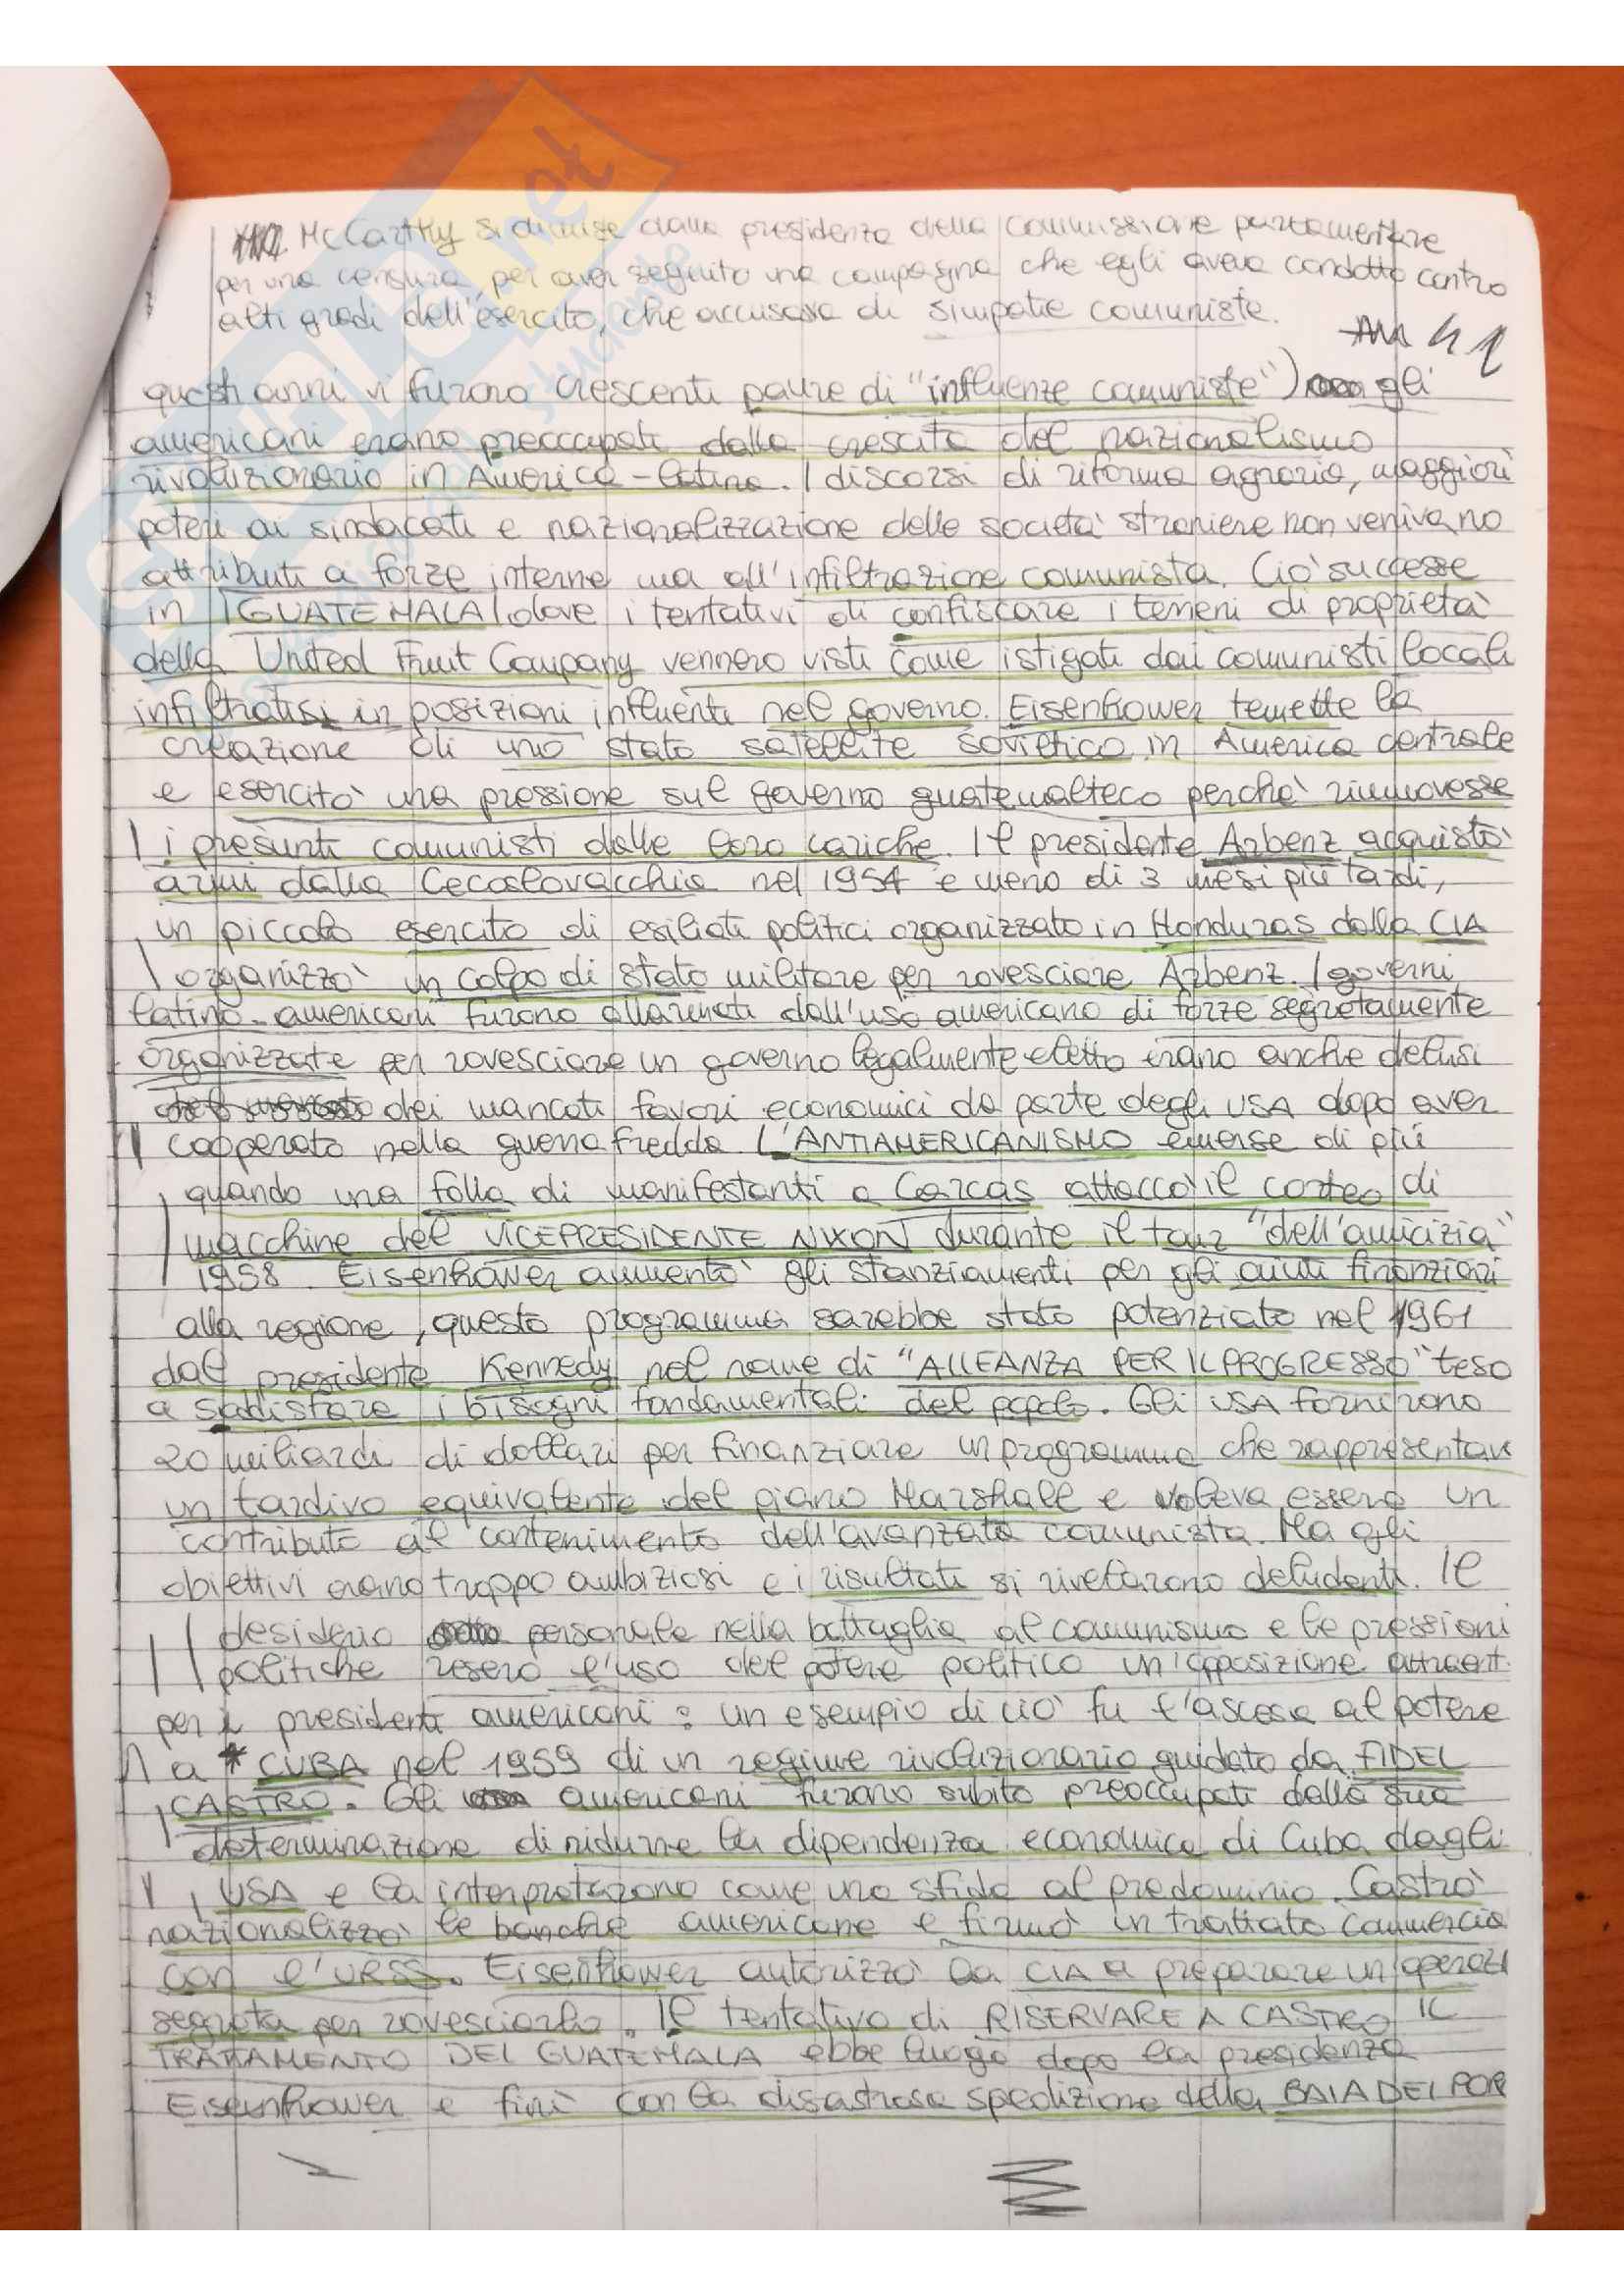 McCarthy si dimise dalla presidenza della commissione parlamentare
per una censura per aver seguito una campagna che egli aveva condotto contro
alti gradi dell'esercito, che accusava di simpatie comuniste.
41
questi anni vi furono crescenti paure di "influenze comuniste") gli
americani erano preoccupati dalla crescita del nazionalismo
rivoluzionario in America-latina. I discorsi di riforma agraria, maggiori
poteri ai sindacati e nazionalizzazione delle società straniere non venivano
attribuiti a forze interne ma all'infiltrazione comunista. Ciò successe
in GUATEMALA dove i tentativi di confiscare i terreni di proprietà
della United Fruit Company vennero visti come istigati dai comunisti locali
infiltratisi in posizioni influenti nel governo. Eisenhower temette la
creazione di uno stato satellite sovietico in America centrale
e esercitò una pressione sul governo guatemalteco perchè rimuovesse
i presunti comunisti dalle loro cariche. Il presidente Arbenz acquistò
armi dalla Cecoslovacchia nel 1954 e meno di 3 mesi più tardi,
un piccolo esercito di esiliati politici organizzato in Honduras dalla CIA
organizzò un colpo di stato militare per rovesciare Arbenz. I governi
latino-americani furono allarmati dall'uso americano di forze segretamente
organizzate per rovesciare un governo legalmente eletto erano anche delusi
dei mancati favori economici da parte degli USA dopo aver
cooperato nella guerra fredda. L'ANTIAMERICANISMO emerse di più
quando una folla di manifestanti a Carcas attaccò il corteo di
macchine del VICEPRESIDENTE NIXON durante il tour "dell'amicizia"
1958. Eisenhower aumentò gli stanziamenti per gli aiuti finanziari
alla regione, questo programma sarebbe stato potenziato nel 1961
dal presidente Kennedy nel nome di "ALLEANZA PER IL PROGRESSO" teso
a soddisfare i bisogni fondamentali del popolo. Gli USA fornirono
20 miliardi di dollari per finanziare un programma che rappresentava
un tardivo equivalente del piano Marshall e voleva essere un
contributo al contenimento dell'avanzata comunista. Ma gli
obiettivi erano troppo ambiziosi e i risultati si rivelarono deludenti. Il
desiderio personale nella battaglia al comunismo e le pressioni
politiche resero l'uso del potere politico un'opposizione
per i presidenti americani: un esempio di ciò fu l'ascesa al potere
a * CUBA nel 1959 di un regime rivoluzionario guidato da FIDEL
CASTRO. Gli americani furono subito preoccupati dalla sua
determinazione di ridurre la dipendenza economica di Cuba dagli
USA e la interpretarono come una sfida al predominio. Castro
nazionalizzò le banche americane e firmò un trattato commercia
con l'URSS. Eisenhower autorizzò la CIA a preparare un operazi
segreta per rovesciarlo. Il tentativo di RISERVARE A CASTRO IL
TRATTAMENTO DEL GUATEMALA ebbe luogo dopo la presidenza
Eisenhower e finì con la disastrosa spedizione della BAIA DEI POR